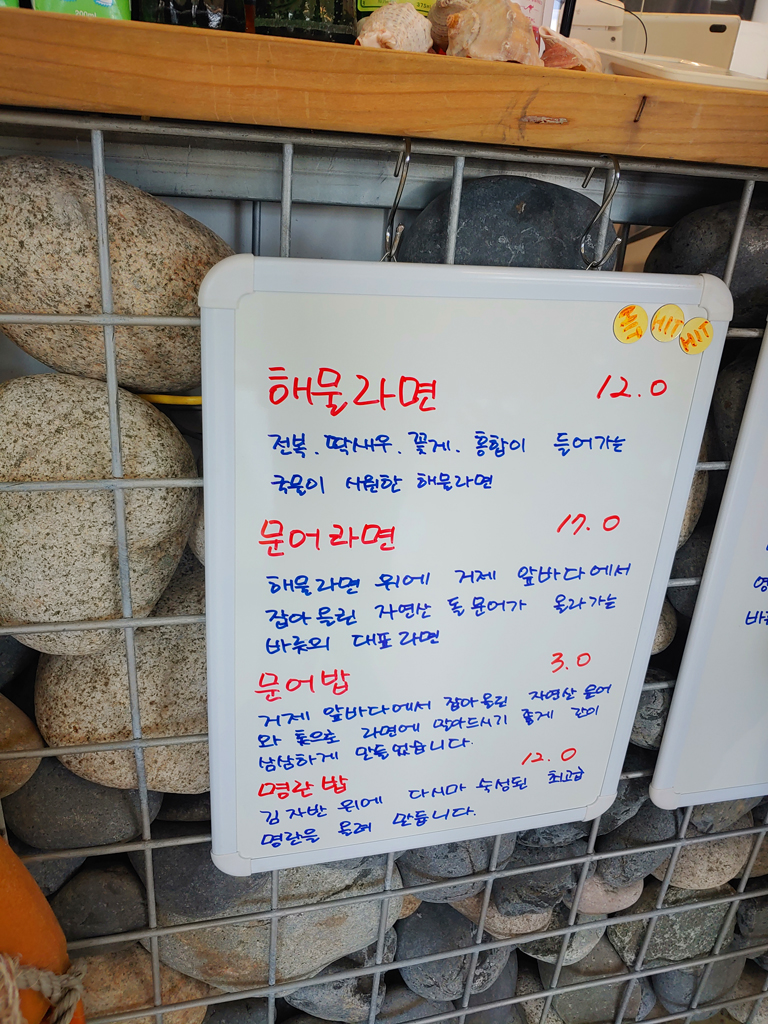 HIT HIT HIT
해물라면 12.0
전복. 딱새우. 꽃게. 홍합이 들어가는
국물이 시원한 해물라면
문어라면 17.0
해물라면 위에 거제 앞바다에서
잡아올린 자연산 돌문어가 올라가는
바룻의 대표라면
문어밥 3.0
거제 앞바다에서 잡아올린 자연산 문어
와 톳으로 라면에 말아드시기 좋게 간이
삼삼하게 만들었습니다.
명란밥 12.0
김자반 위에 다시마 숙성된 최고급
명란을 올려 만듭니다.